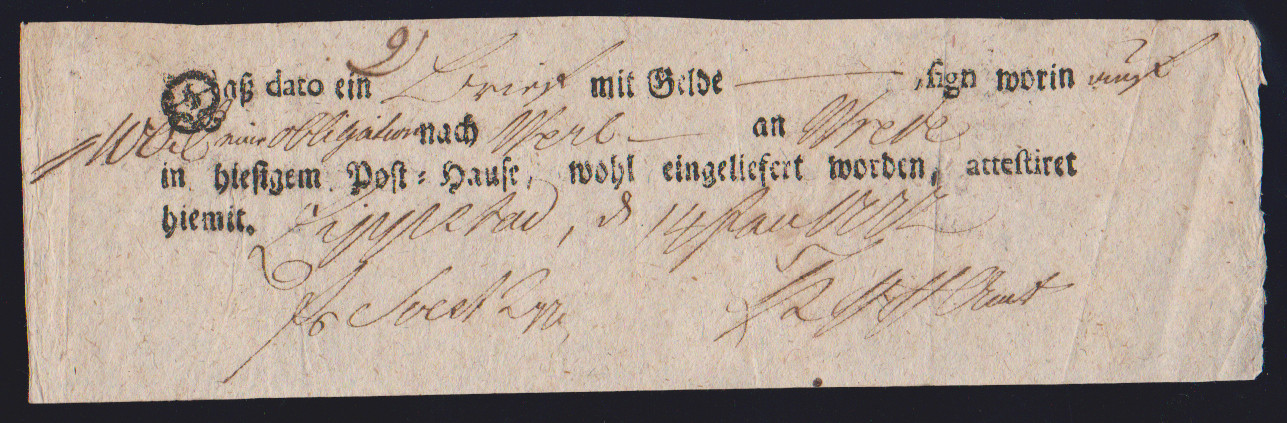 9)
Daß dato ein Brief mit Gelde —— , sign worin auch
eine obligation nach Werl — an Wrede
in hiesigem Post-Hause, wohl eingeliefert worden, attestiret
hiemit. Lippstad, d 14 Jan
Soest